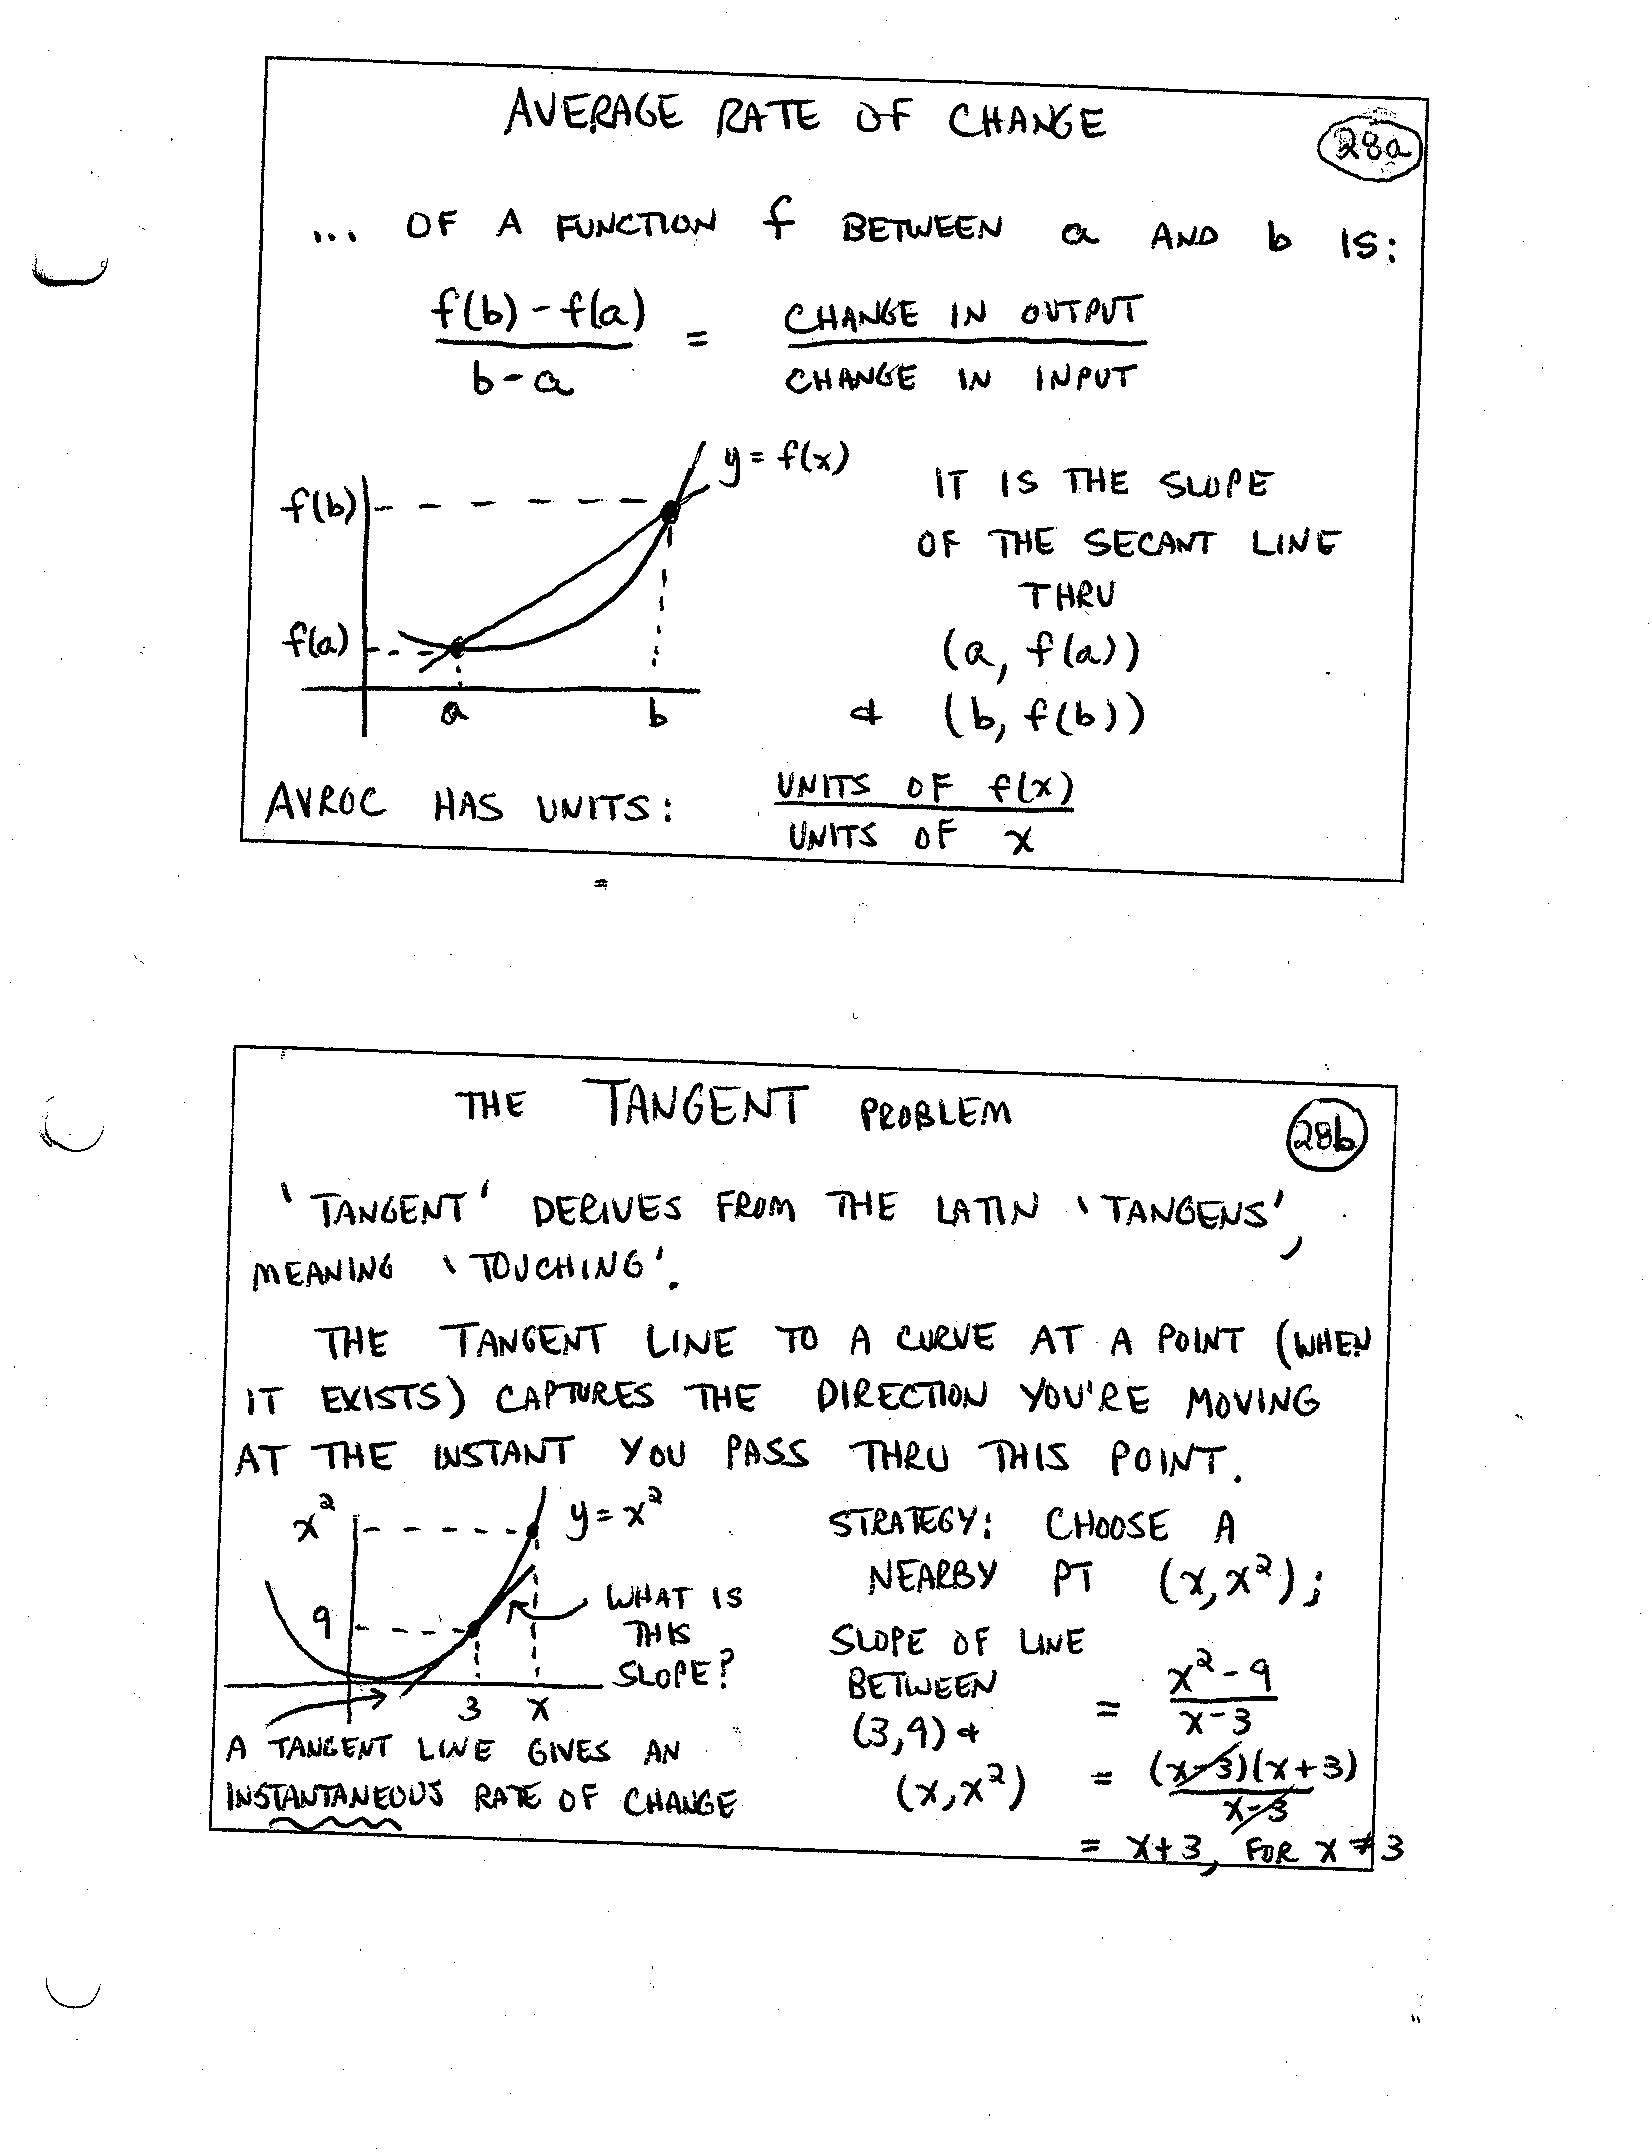 AVERAGE RATE OF CHANGE
28a
... OF A FUNCTION f BETWEEN a AND b IS:
f(b) - f(a) / b - a = CHANGE IN OUTPUT / CHANGE IN INPUT
y = f(x)
f(b)
f(a)
a b
IT IS THE SLOPE
OF THE SECANT LINE
THRU
(a, f(a))
& (b, f(b))
AVROC HAS UNITS: UNITS OF f(x) / UNITS OF x
THE TANGENT PROBLEM
28b
'TANGENT' DERIVES FROM THE LATIN 'TANGENS',
MEANING 'TOUCHING'.
THE TANGENT LINE TO A CURVE AT A POINT (WHEN
IT EXISTS) CAPTURES THE DIRECTION YOU'RE MOVING
AT THE INSTANT YOU PASS THRU THIS POINT.
x² y = x²
9
3 x
WHAT IS
THIS
SLOPE?
A TANGENT LINE GIVES AN
INSTANTANEOUS RATE OF CHANGE
STRATEGY: CHOOSE A
NEARBY PT (x, x²);
SLOPE OF LINE
BETWEEN
(3,9) &
(x, x²)
= x² - 9 / x - 3
= (x-3)(x+3) / x-3
= x+3, FOR x ≠ 3